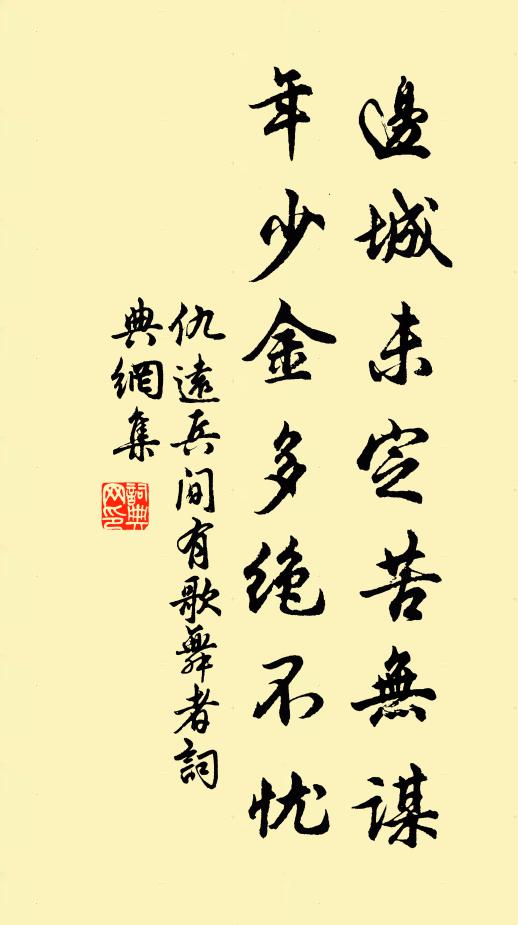 邊城未定苦無謀
年少金多絶不忧
仇遠兵間有歌舞者詞
典網集
詞典
网印